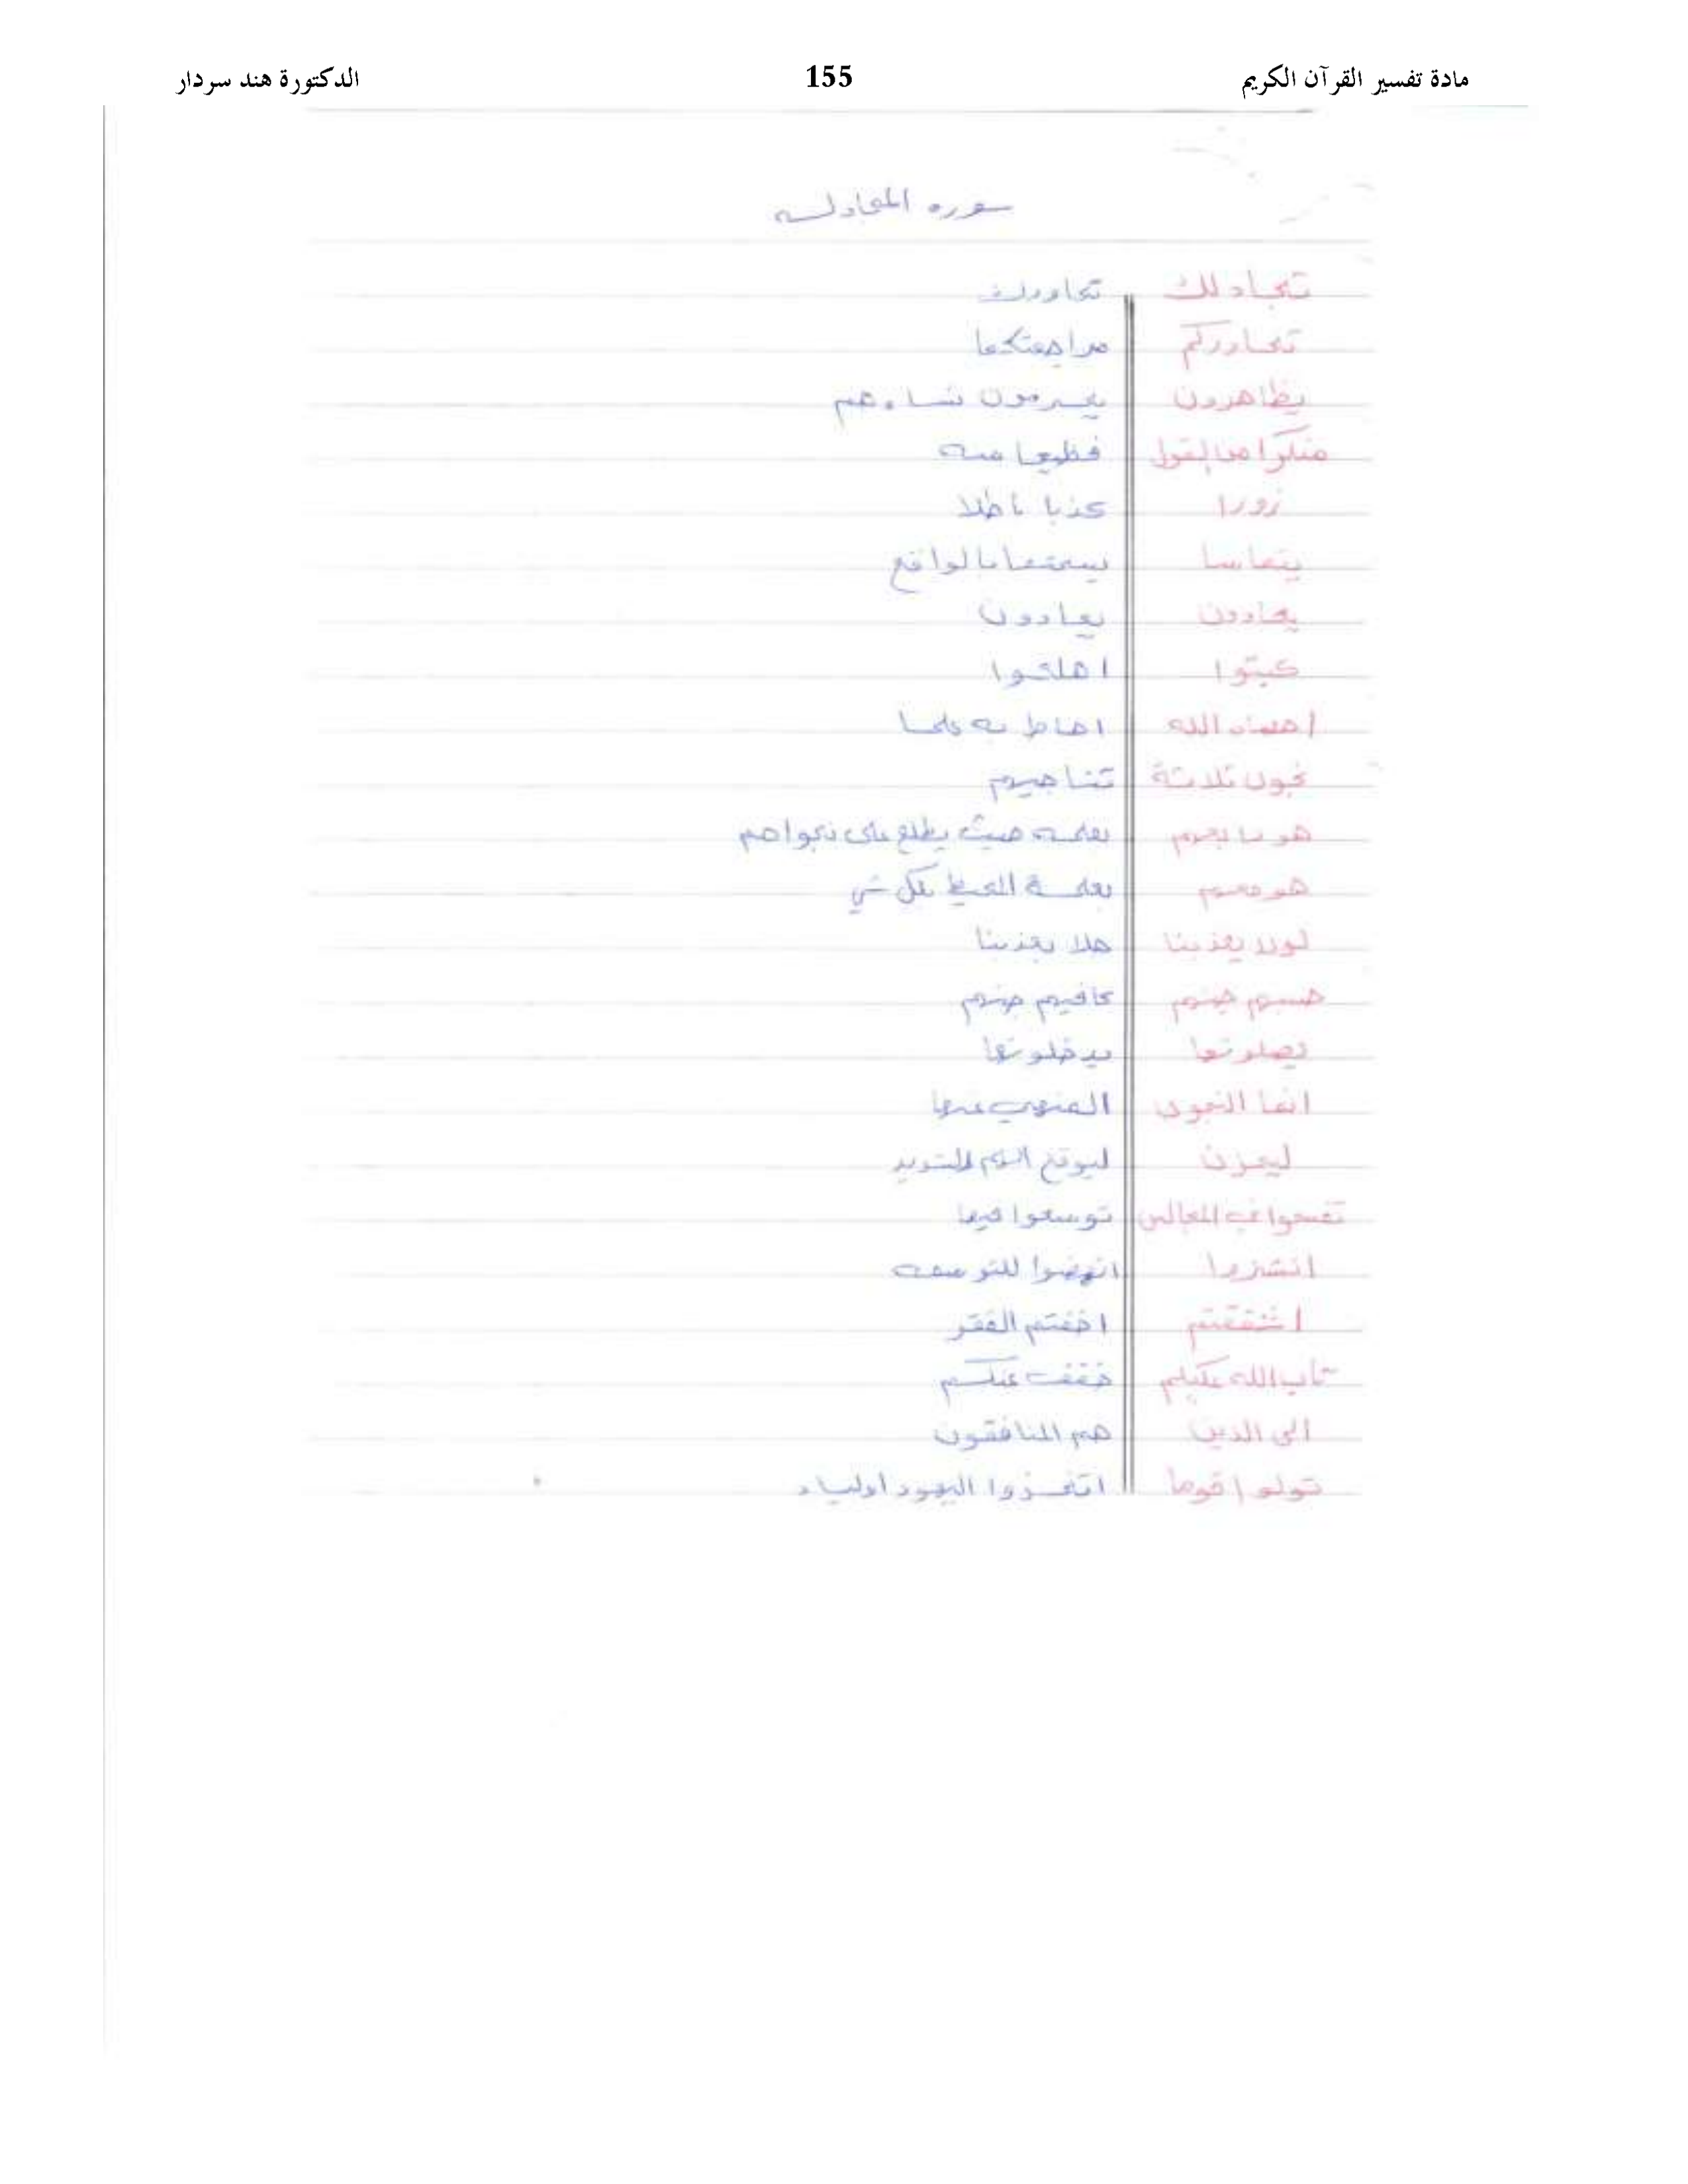 مادة تفسير القرآن الكريم 155 الدكتورة هند سردار
سوره المجادله
تجادلك تحاورك
تحاوركم مراجعتكما
يظاهرون يحرمون نساءهم
منكرا من القول فظيعا منه
زورا كذبا باطلا
يتماسا يستمتعا بالواقع
يحادون يعادون
كبتوا اهلكوا
احصاه الله احاط به علما
نجوى ثلاثة تناجيهم
هو رابعهم بعلمه حيث يطلع على نجواهم
هو معهم بعلمة المحيط بكل شي
لولا يعذبنا هلا يعذبنا
حسبهم جهنم كافيهم جهنم
يصلونها يدخلونها
انما النجوى المنهي عنها
ليحزن ليوقع الهم الشديد
تفسحوا في المجالس توسعوا فيها
انشزوا انهضوا للتوسعه
اشفقتم اخفتم الفقر
تاب الله عليكم خفف عنكم
الى الذين هم المنافقون
تولوا قوما اتخذوا اليهود اولياء